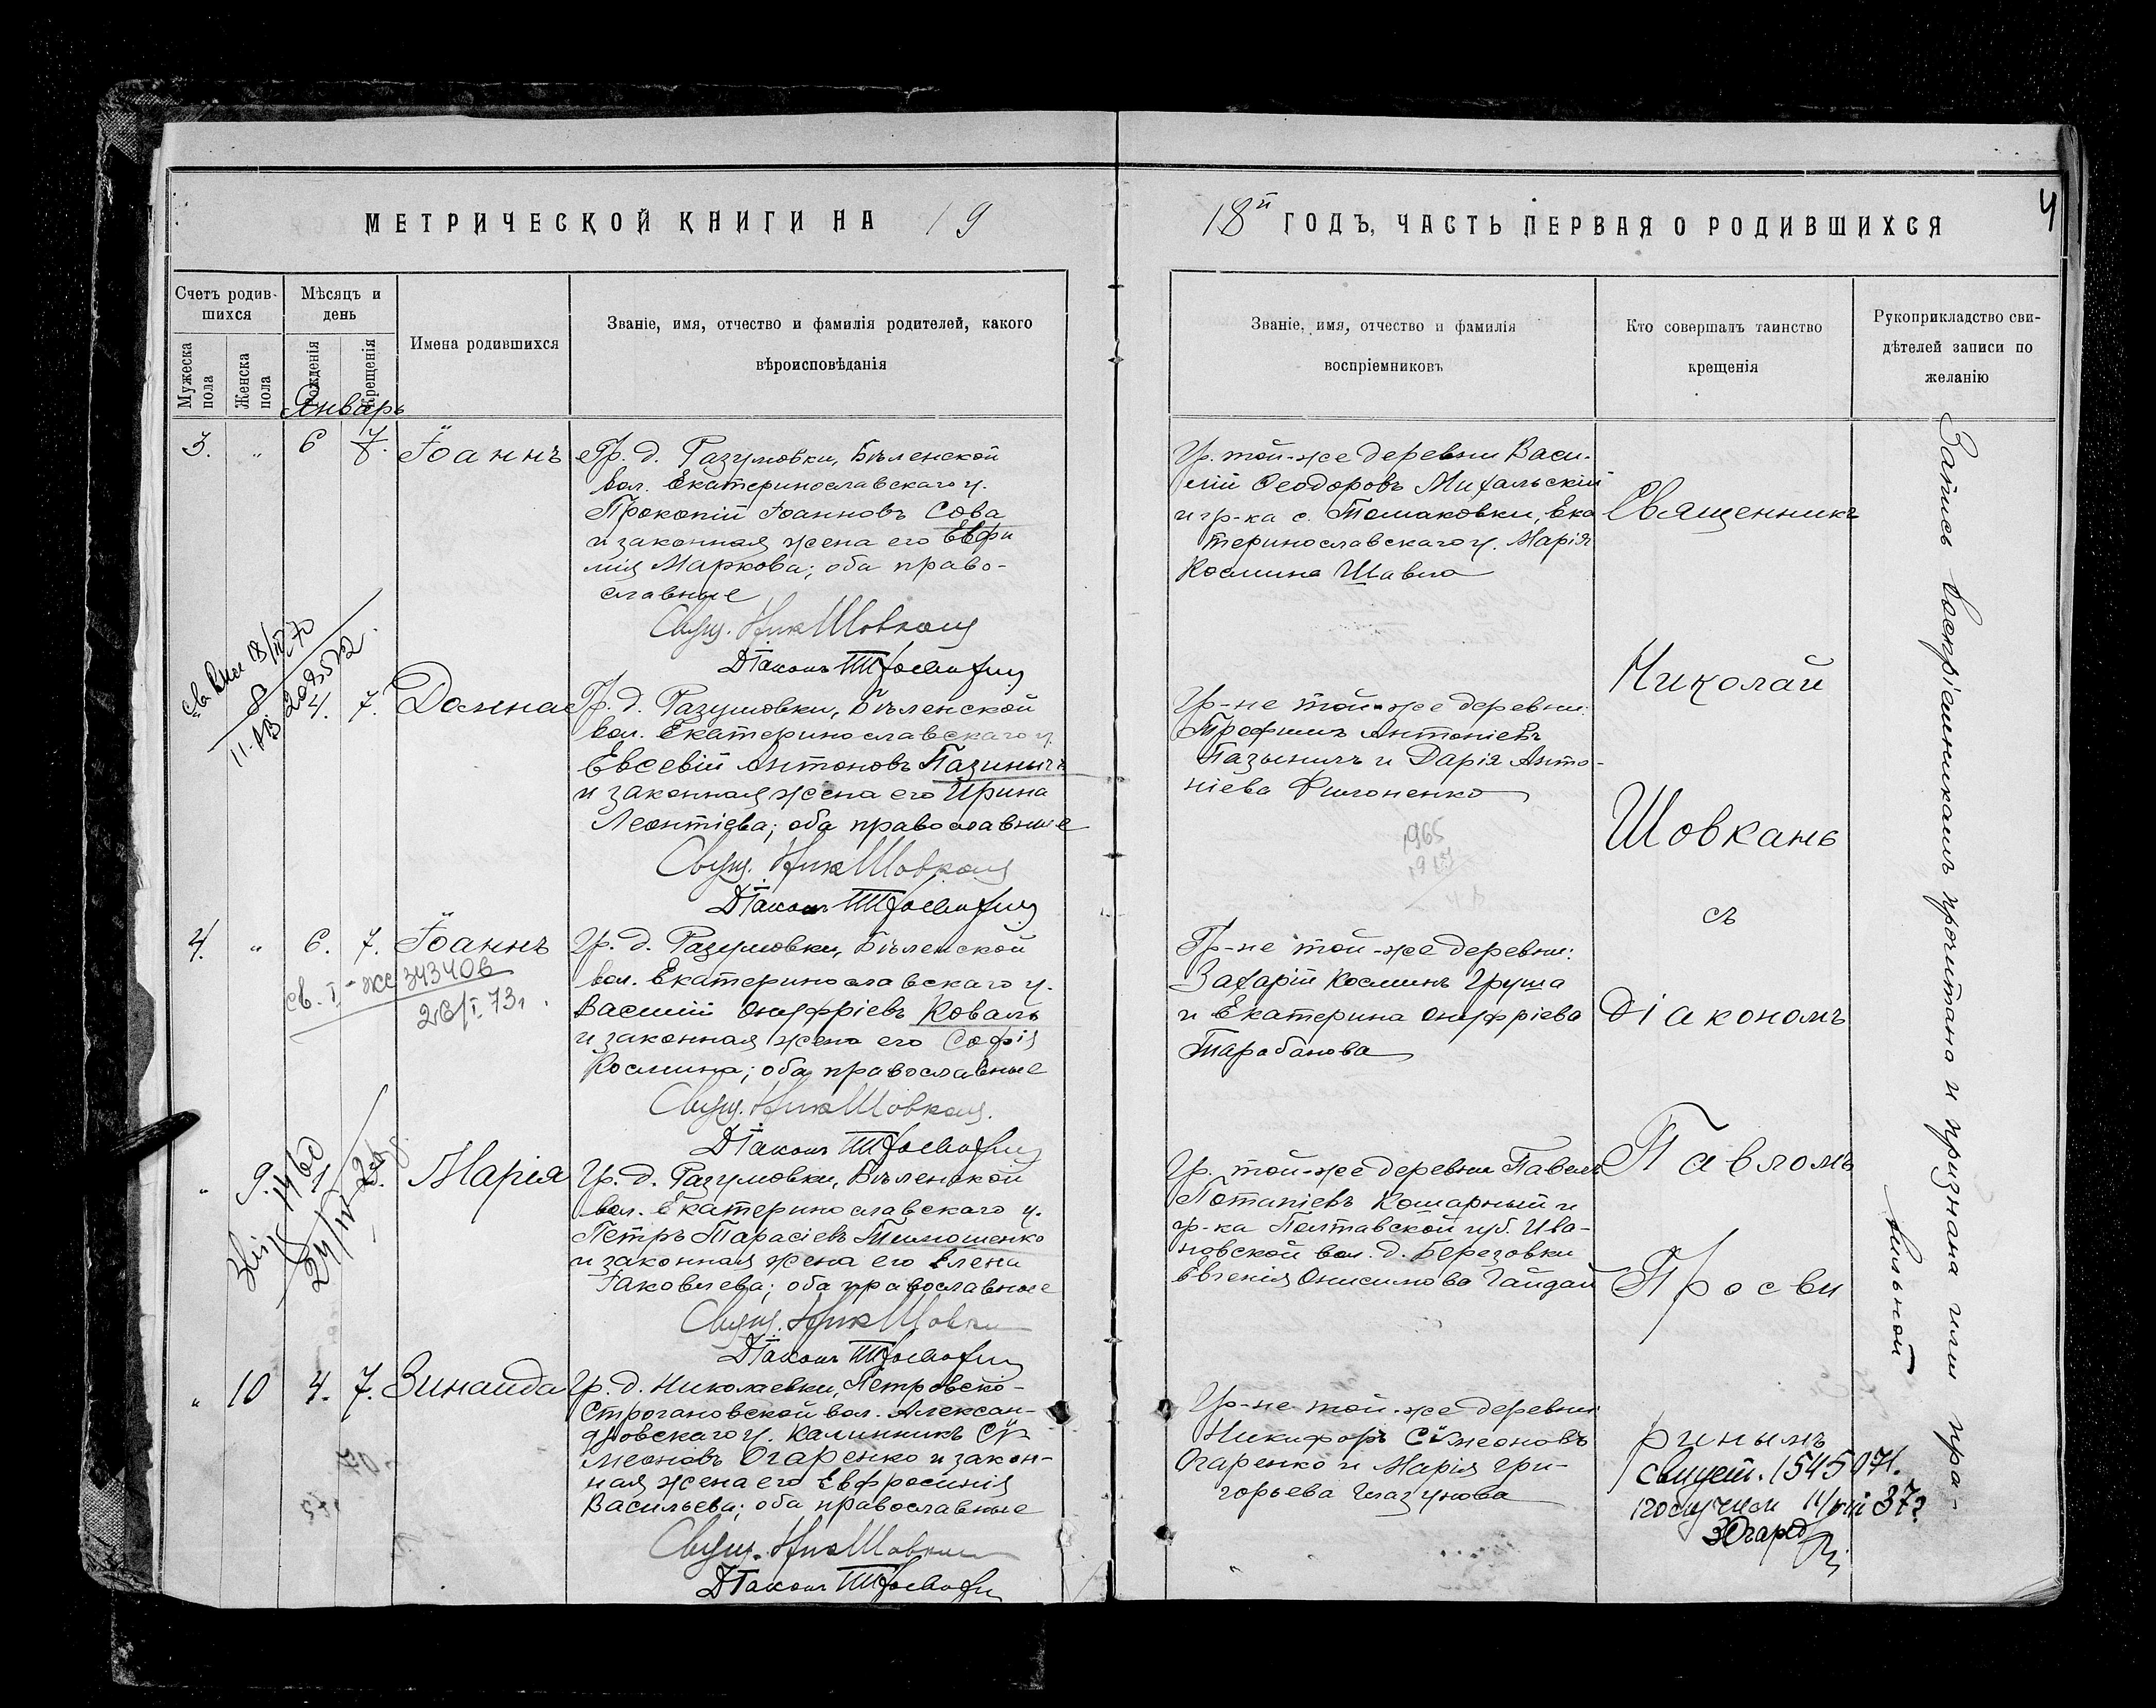 МЕТРИЧЕСКОЙ КНИГИ НА 19
18й ГОДЪ, ЧАСТЬ ПЕРВАЯ О РОДИВШИХСЯ
4
Счетъ родив-
шихся
Мужеска
пола
Женска
пола
Мѣсяцъ и
день
Рожденія
Крещенія
Имена родившихся
Званіе, имя, отчество и фамилія родителей, какого
вѣроисповѣданія
Званіе, имя, отчество и фамилія
воспріемниковъ
Кто совершалъ таинство
крещенія
Рукоприкладство сви-
дѣтелей записи по
желанію
Январь
3. " 6 7. Іоаннъ
Гр. д. Разумовки, Бѣленской
вол. Екатеринославскаго у.
Прокопій Іоанновъ Сова
и законная жена его Евфи
мія Маркова; оба право-
славные
Свящ. Ник Шовкань
Діаконъ
Гр. той-же деревни Васи-
лій Феодоровъ Михальскій
и гр-ка с. Томаковки, Ека
теринославскаго у. Марія
Космина Шавло
4. 7. Домна
Гр. д. Разумовки, Бѣленской
вол. Екатеринославскаго у.
Евсевій Антоновъ Пазиничъ
и законная жена его Ирина
Леонтіева; оба православные
Свящ. Ник Шовкань
Діаконъ
Гр-не той-же деревни:
Трофимъ Антоніевъ
Пазыничъ и Дарія Анто-
ніева Филоненко
1965
4. " 6. 7. Іоаннъ
св. I-жс 343406
26/I 73г.
Гр. д. Разумовки, Бѣленской
вол. Екатеринославскаго у.
Василій Онуфріевъ Коваль
и законная жена его Софія
Космина; оба православные
Свящ. Ник Шовкань.
Діаконъ
Гр-не той-же деревни:
Захарій Косминъ Груша
и Екатерина Онуфріева
Тарабанова
" 9. Марія
Гр. д. Разумовки, Бѣленской
вол. Екатеринославскаго у.
Петръ Тарасіевъ Тимошенко
и законная жена его Елена
Іаковлева; оба православные
Свящ. Ник Шовкань
Діаконъ
Гр. той-же деревни Павелъ
Потапіевъ Комарный и
гр-ка Полтавской губ. Ива-
новской вол. д. Березовки
Евгенія Онисимова Гайдай
" 10 4. 7. Зинаида
Гр. д. Николаевки, Петровско-
Строгановской вол. Алексан-
дровскаго у. Калинникъ Сѵ
меоновъ Огаренко и закон-
ная жена его Евфросинія
Васильева; оба православные
Свящ. Ник Шовкань
Діаконъ
Гр-не той-же деревни
Никифоръ Сімеоновъ
Огаренко и Марія Гри-
горьева Глазунова
Священникъ
Николай
Шовкань
съ
Діакономъ
Павломъ
Просви
ринымъ
Свидет. 1545071.
получил 11/VIII 37г
Запись воспріемникамъ прочитана и признана ими пра-
вильной